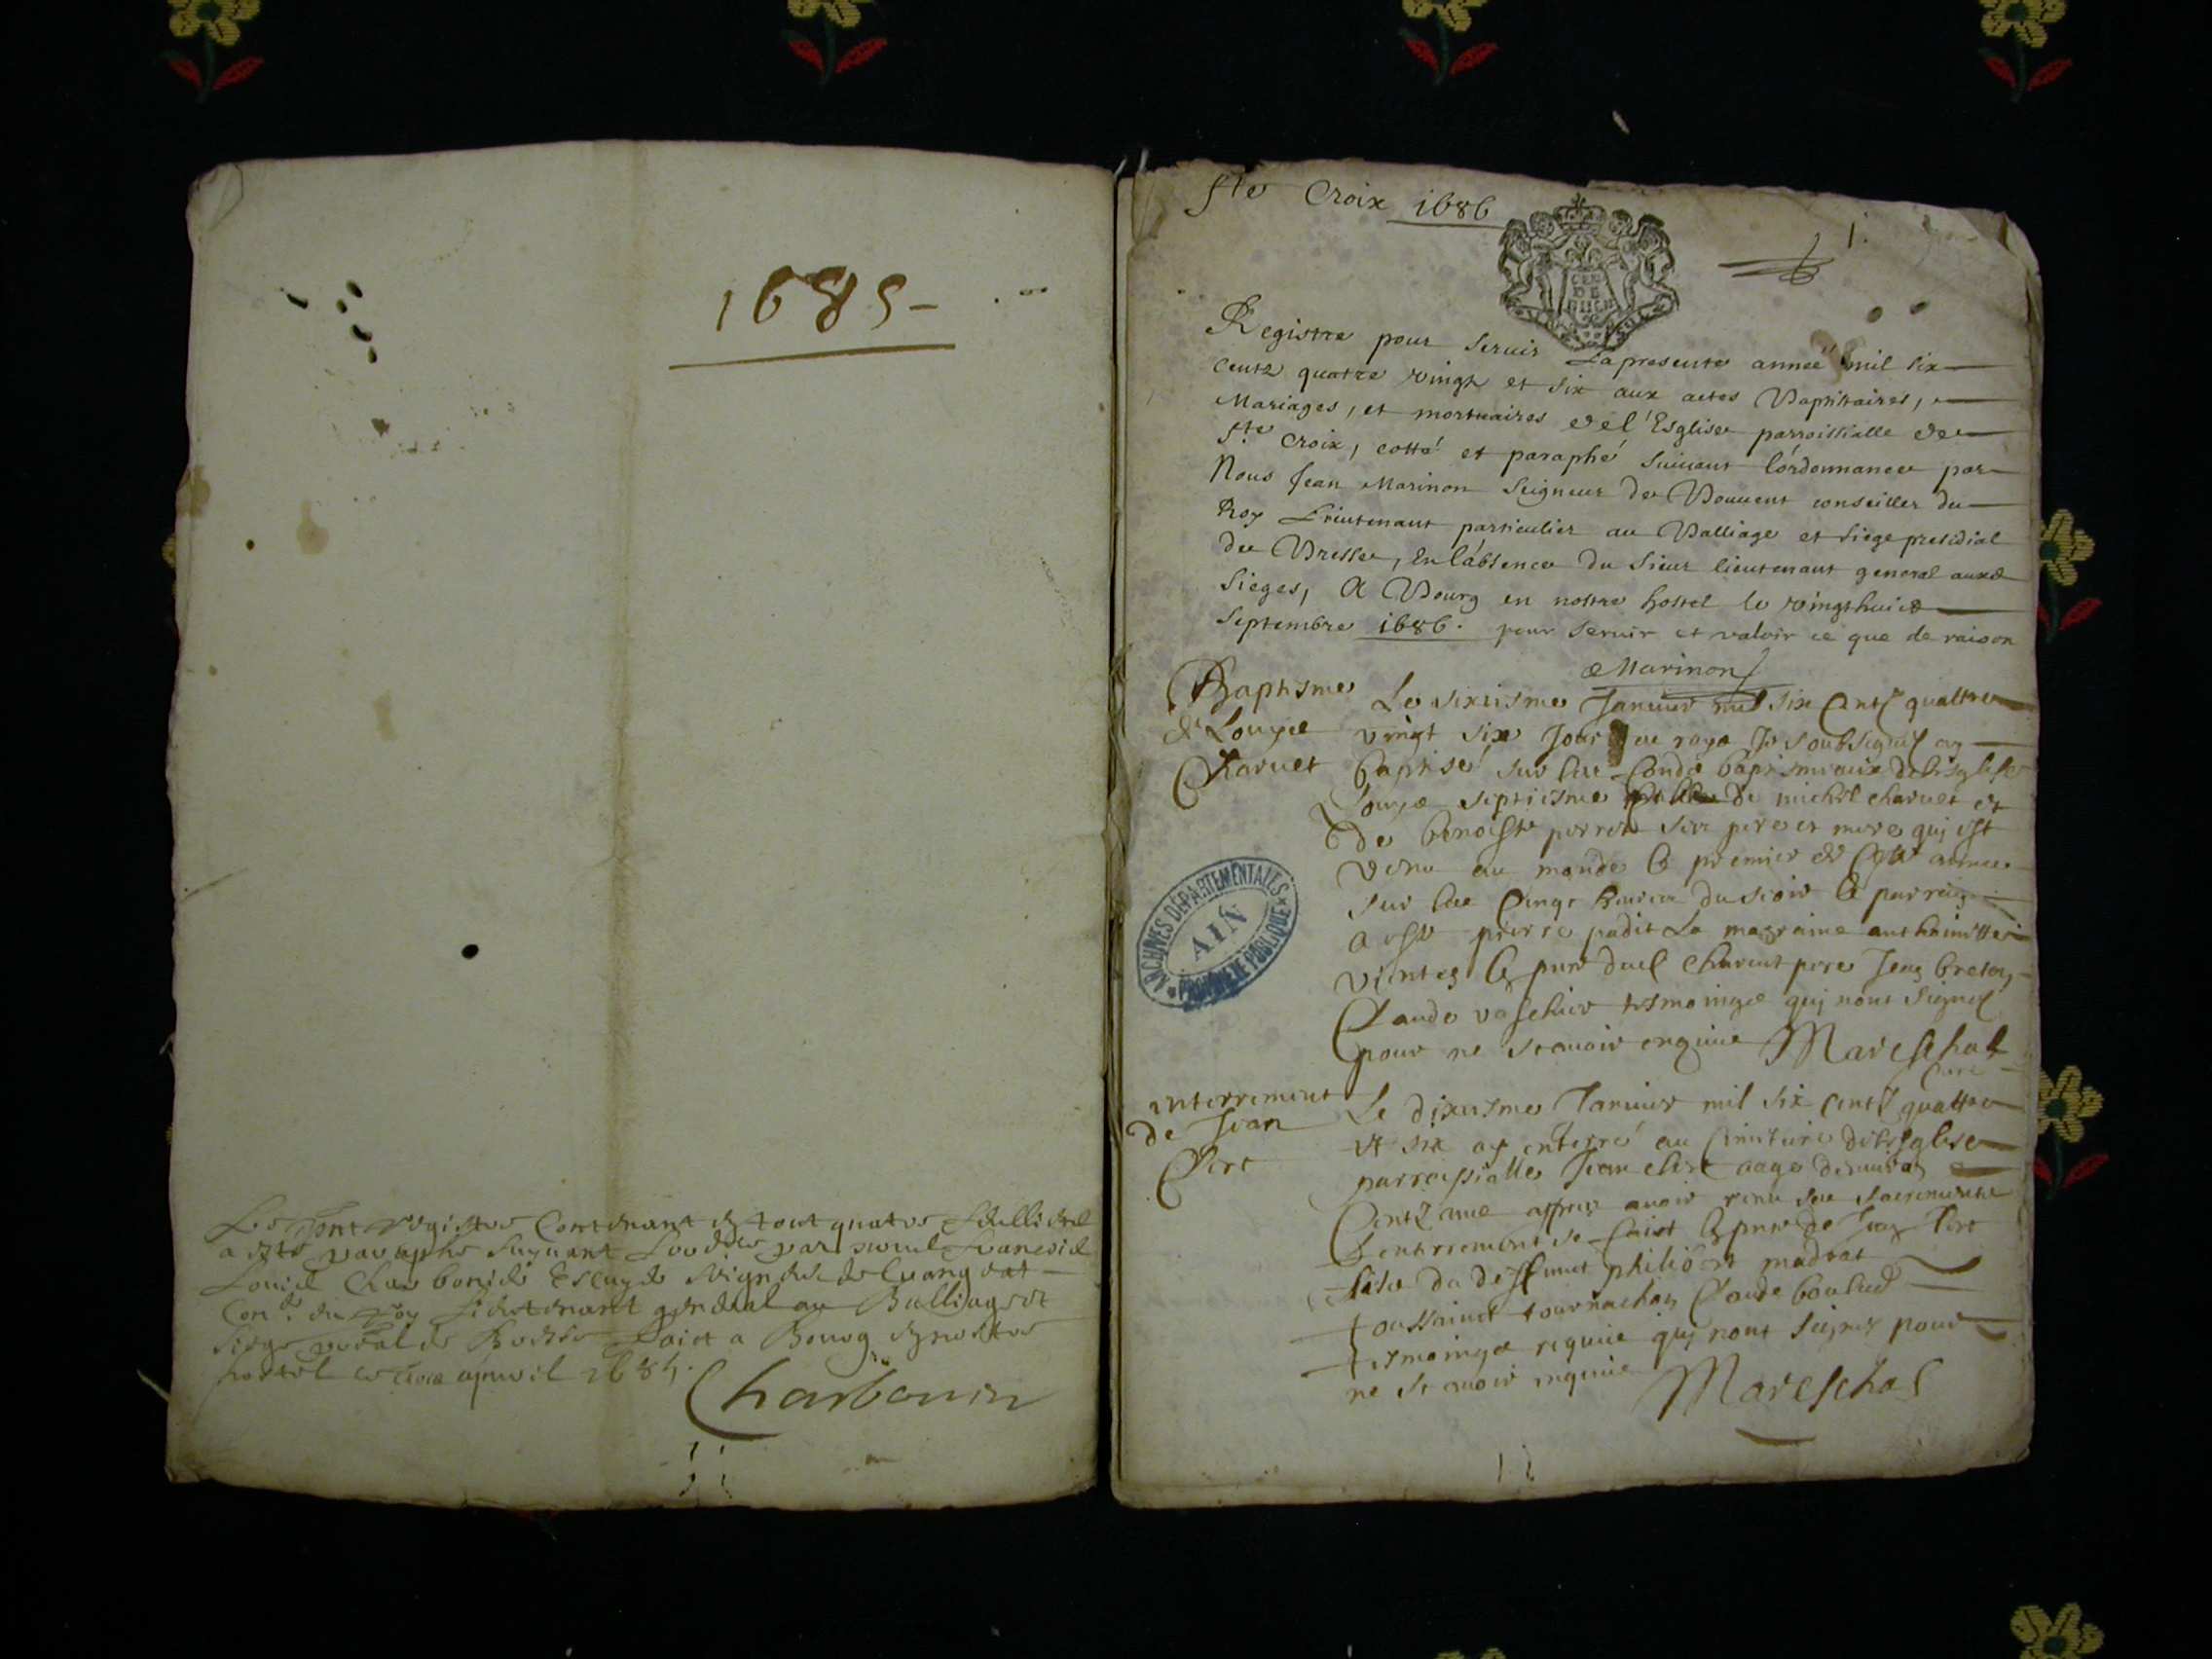 1685
Le pnt registre Contenant en tout quatre feulliets
a esté paraphé suyuant par nous
Louis Charbonier Escuyer Seigneur de
Con.er du Roy Lieutenant general au Balliage et
siege de Bresse faict a Bourg en nostre
hostel le apuril 1685.
Charbonier
Ste Croix 1686
1.
GEN
DE
Registre pour seruir La presente année mil six
centz quatre vingt et six aux actes Baptistaires,
Mariages, et mortuaires de l'Esglise parroissialle de
Ste Croix, cotté et paraphé suiuant l'ordonnance par
Nous Jean Marinon Seigneur de Bouuent conseiller du
Roy Lieutenant particulier au Balliage et siege presidial
de Bresse, En l'absence du sieur lieutenant general auxd
sieges, A Bourg en nostre hostel le vingthuict
Septembre 1686. pour seruir et valoir ce que de raison
Marinon
Baptisme
de Louyse
Charuet
Le sixiesme Januier mil six centz quattre
vingt six Jour de roys Je soubsigné ay
baptisé sur les fonds baptismaux de lesglise
Louyse septiesme fille de michel charuet et
de benoiste perret ses pere et mere qui est
venu au monde le premier de ceste annee
sur les cinq heures du soir le parrein
a esté pierre padit La marraine anthoinette
vientez Claude
Claude vaschier tesmoings qui nont signez
pour ne scauoir enquis Mareschal
Curé
enterrement
de Jean
Clert
Le dixiesme Januier mil six centz quattre
et six ay enterré au cimitiere de lesglise
parroissialle Jean clert aage denuiron
Centz ans apprez auoir renu ses sacrements
Lenterrement se faict de Jean Clert
filz du deffunct philibert madrat
toussainct tournachon Claude boulud
tesmoings requis qui nont signez pour
ne scauoir enquis Mareschal
ARCHIVES DÉPARTEMENTALES
AIN
PROPRIÉTÉ PUBLIQUE